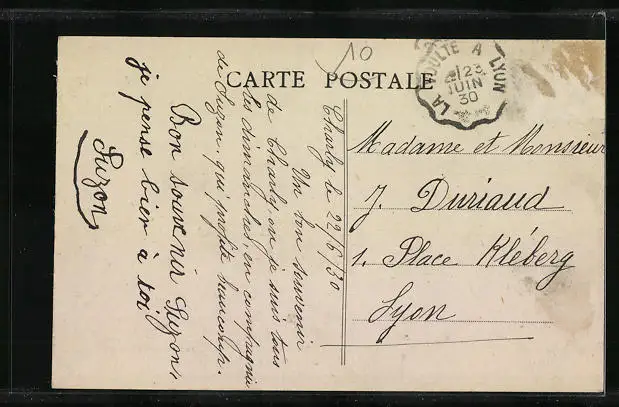 10
CARTE POSTALE
LA VOULTE A LYON
23
JUIN
30
Charly le 22/6/30
Un bon souvenir
de Charly, où je suis tous
les dimanches, en compagnie
de Suzon, qui profite beaucoup.
Bon souvenir Suzon,
je pense bien à toi
Suzon
Madame et Monsieur
J. Duriaud
1, Place Kléberg
Lyon